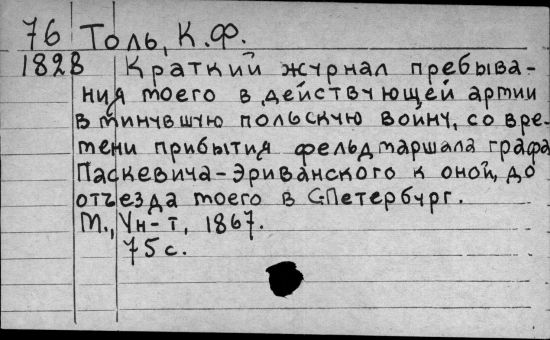 76 Толь, К.Ф.
1828 Краткий журнал пребыва-
ния моего в действующей армии
в минувшую польскую войну, со вре-
мени прибытия фельдмаршала графа
Паскевича-Эриванского к оной, до
отъезда моего в С.Петербург.
М., Ун-т, 1867.
75 с.